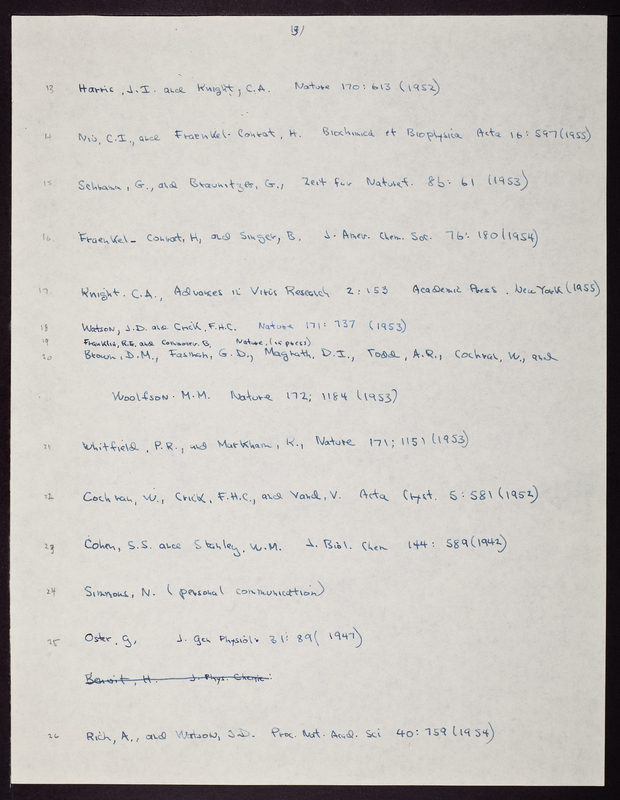 13 Harris, J.I. and Knight, C.A. Nature 170: 613 (1952)
14 Niu, C.I., and Fraenkel-Conrat, H. Biochimica et Biophysica Acta 16: 597 (1955)
15 Schramm, G., and Braunitzer, G., Zeit für Naturf. 8b: 61 (1953)
16. Fraenkel-Conrat, H, and Singer, B. J. Amer. Chem. Soc. 76: 180 (1954)
17. Knight. C.A., Advances in Virus Research 2: 153 Academic Press. New York (1955)
18 Watson, J.D. and Crick, F.H.C. Nature 171: 737 (1953)
19 Franklin, R.E. and Commoner. B. Nature, (in press)
20 Brown, D.M., Fasman, G.D., Magrath, D.I., Todd, A.R., Cochran, W., and
Woolfson. M.M. Nature 172; 1184 (1953)
21 Whitfield, P.R., and Markham, R., Nature 171; 1151 (1953)
22 Cochran, W., Crick, F.H.C., and Vand, V. Acta Cryst. 5: 581 (1952)
23 Cohen, S.S. and Stanley, W.M. J. Biol. Chem 144: 589 (1942)
24 Simmons, N. (personal communication)
25 Oster, G. J. Gen Physiol. 31: 89 (1947)
Benoit, H. J. Phys. Chemie
26 Rich, A., and Watson, J.D. Proc. Nat. Acad. Sci 40: 759 (1954)